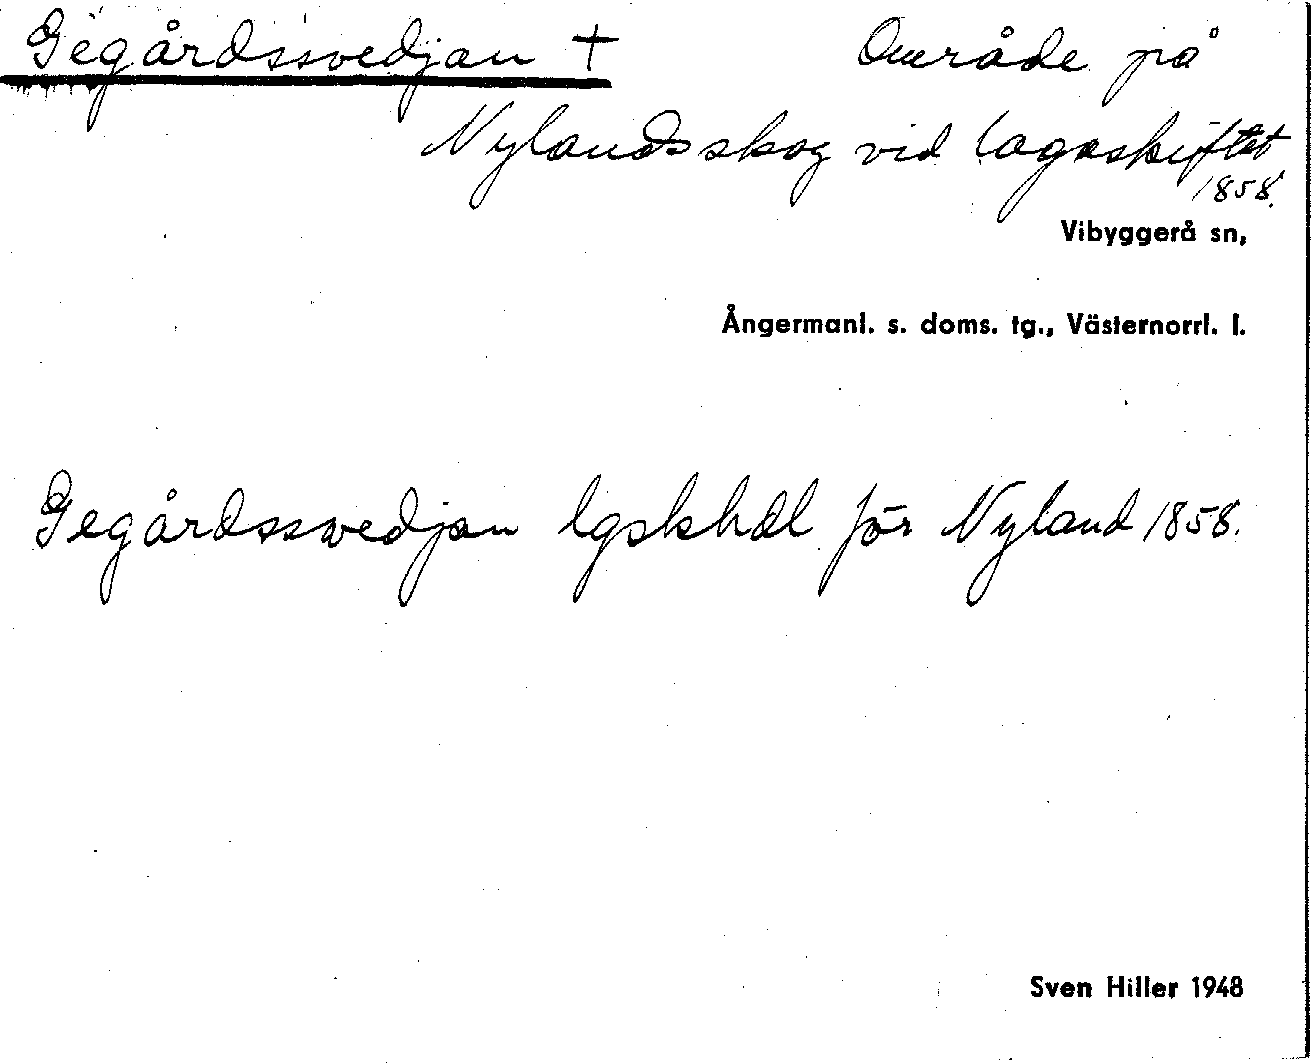 Gegårdssvedjan † Område på
Nylandsskog vid lagaskiftet
1858.
Vibyggerå sn,
Ångermanl. s. doms. tg., Västernorrl. l.
Gegårdssvedjan lgskhdl för Nyland 1858.
Sven Hiller 1948